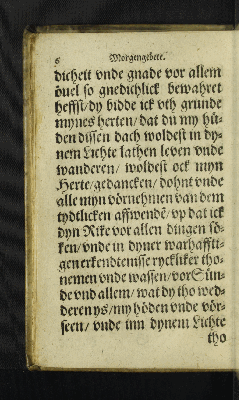 6 Morgengebete.
dicheit vnde gnade vor allem
övel so gnedichlick bewahret
heffst / dy bidde ick vth grunde
mynes herten / dat du my hü-
den dissen dach woldest in dy-
nem Lichte lathen leven vnde
wanderen / woldest ock myn
Herte / gedancken / dohnt vnde
alle myn vörnehmen van dem
tydtlicken affwendē / vp dat ick
dyn Rike vor allen dingen sö-
ken / vnde in dyner warhaffti-
gen erkendtenisse ryckliker tho-
nemen vnde wassen / vor Sün-
de vnd allem / wat dy tho wed-
deren ys / my höden vnde vör-
seen / vnde inn dynem Lichte
tho